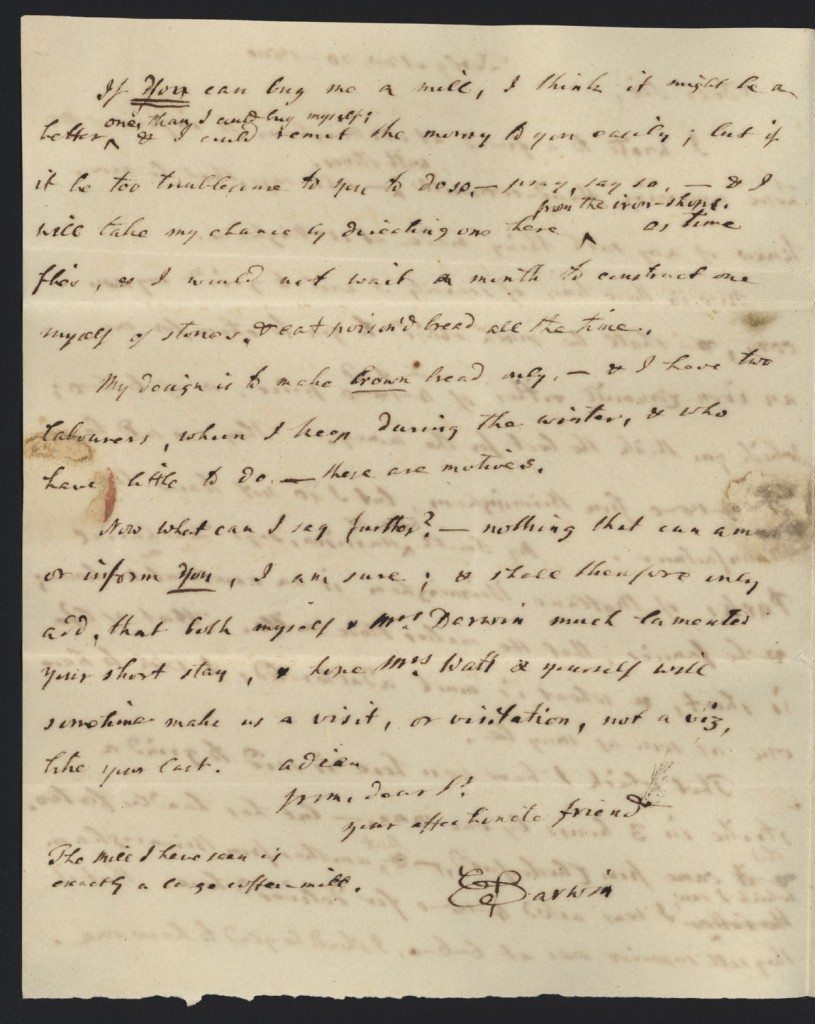 If You can buy me a mill, I think it might be a
one, than I could buy myself;
better & I could remit the money to you easily; but if
it be too troublesome to you to do so, — pray, say so, — & I
from the iron-shops.
will take my chance by directing one here as time
flies, & I would not wait a month to construct one
myself of stones, & eat poison'd bread all the time.
My design is to make brown bread only. — & I have two
labourers, whom I keep during the winter, & who
have little to do. — these are motives.
Now what can I say further? — nothing that can
or inform You, I am sure; & shall therefore only
add, that both myself & Mrs Darwin much lamented
your short stay, & hope Mrs Watt & yourself will
sometime make us a visit, or visitation, not a viz,
like your last. adieu
from, dear Sr.
your affectionate friend
The mill I have seen is
exactly a large coffee-mill.
E Darwin